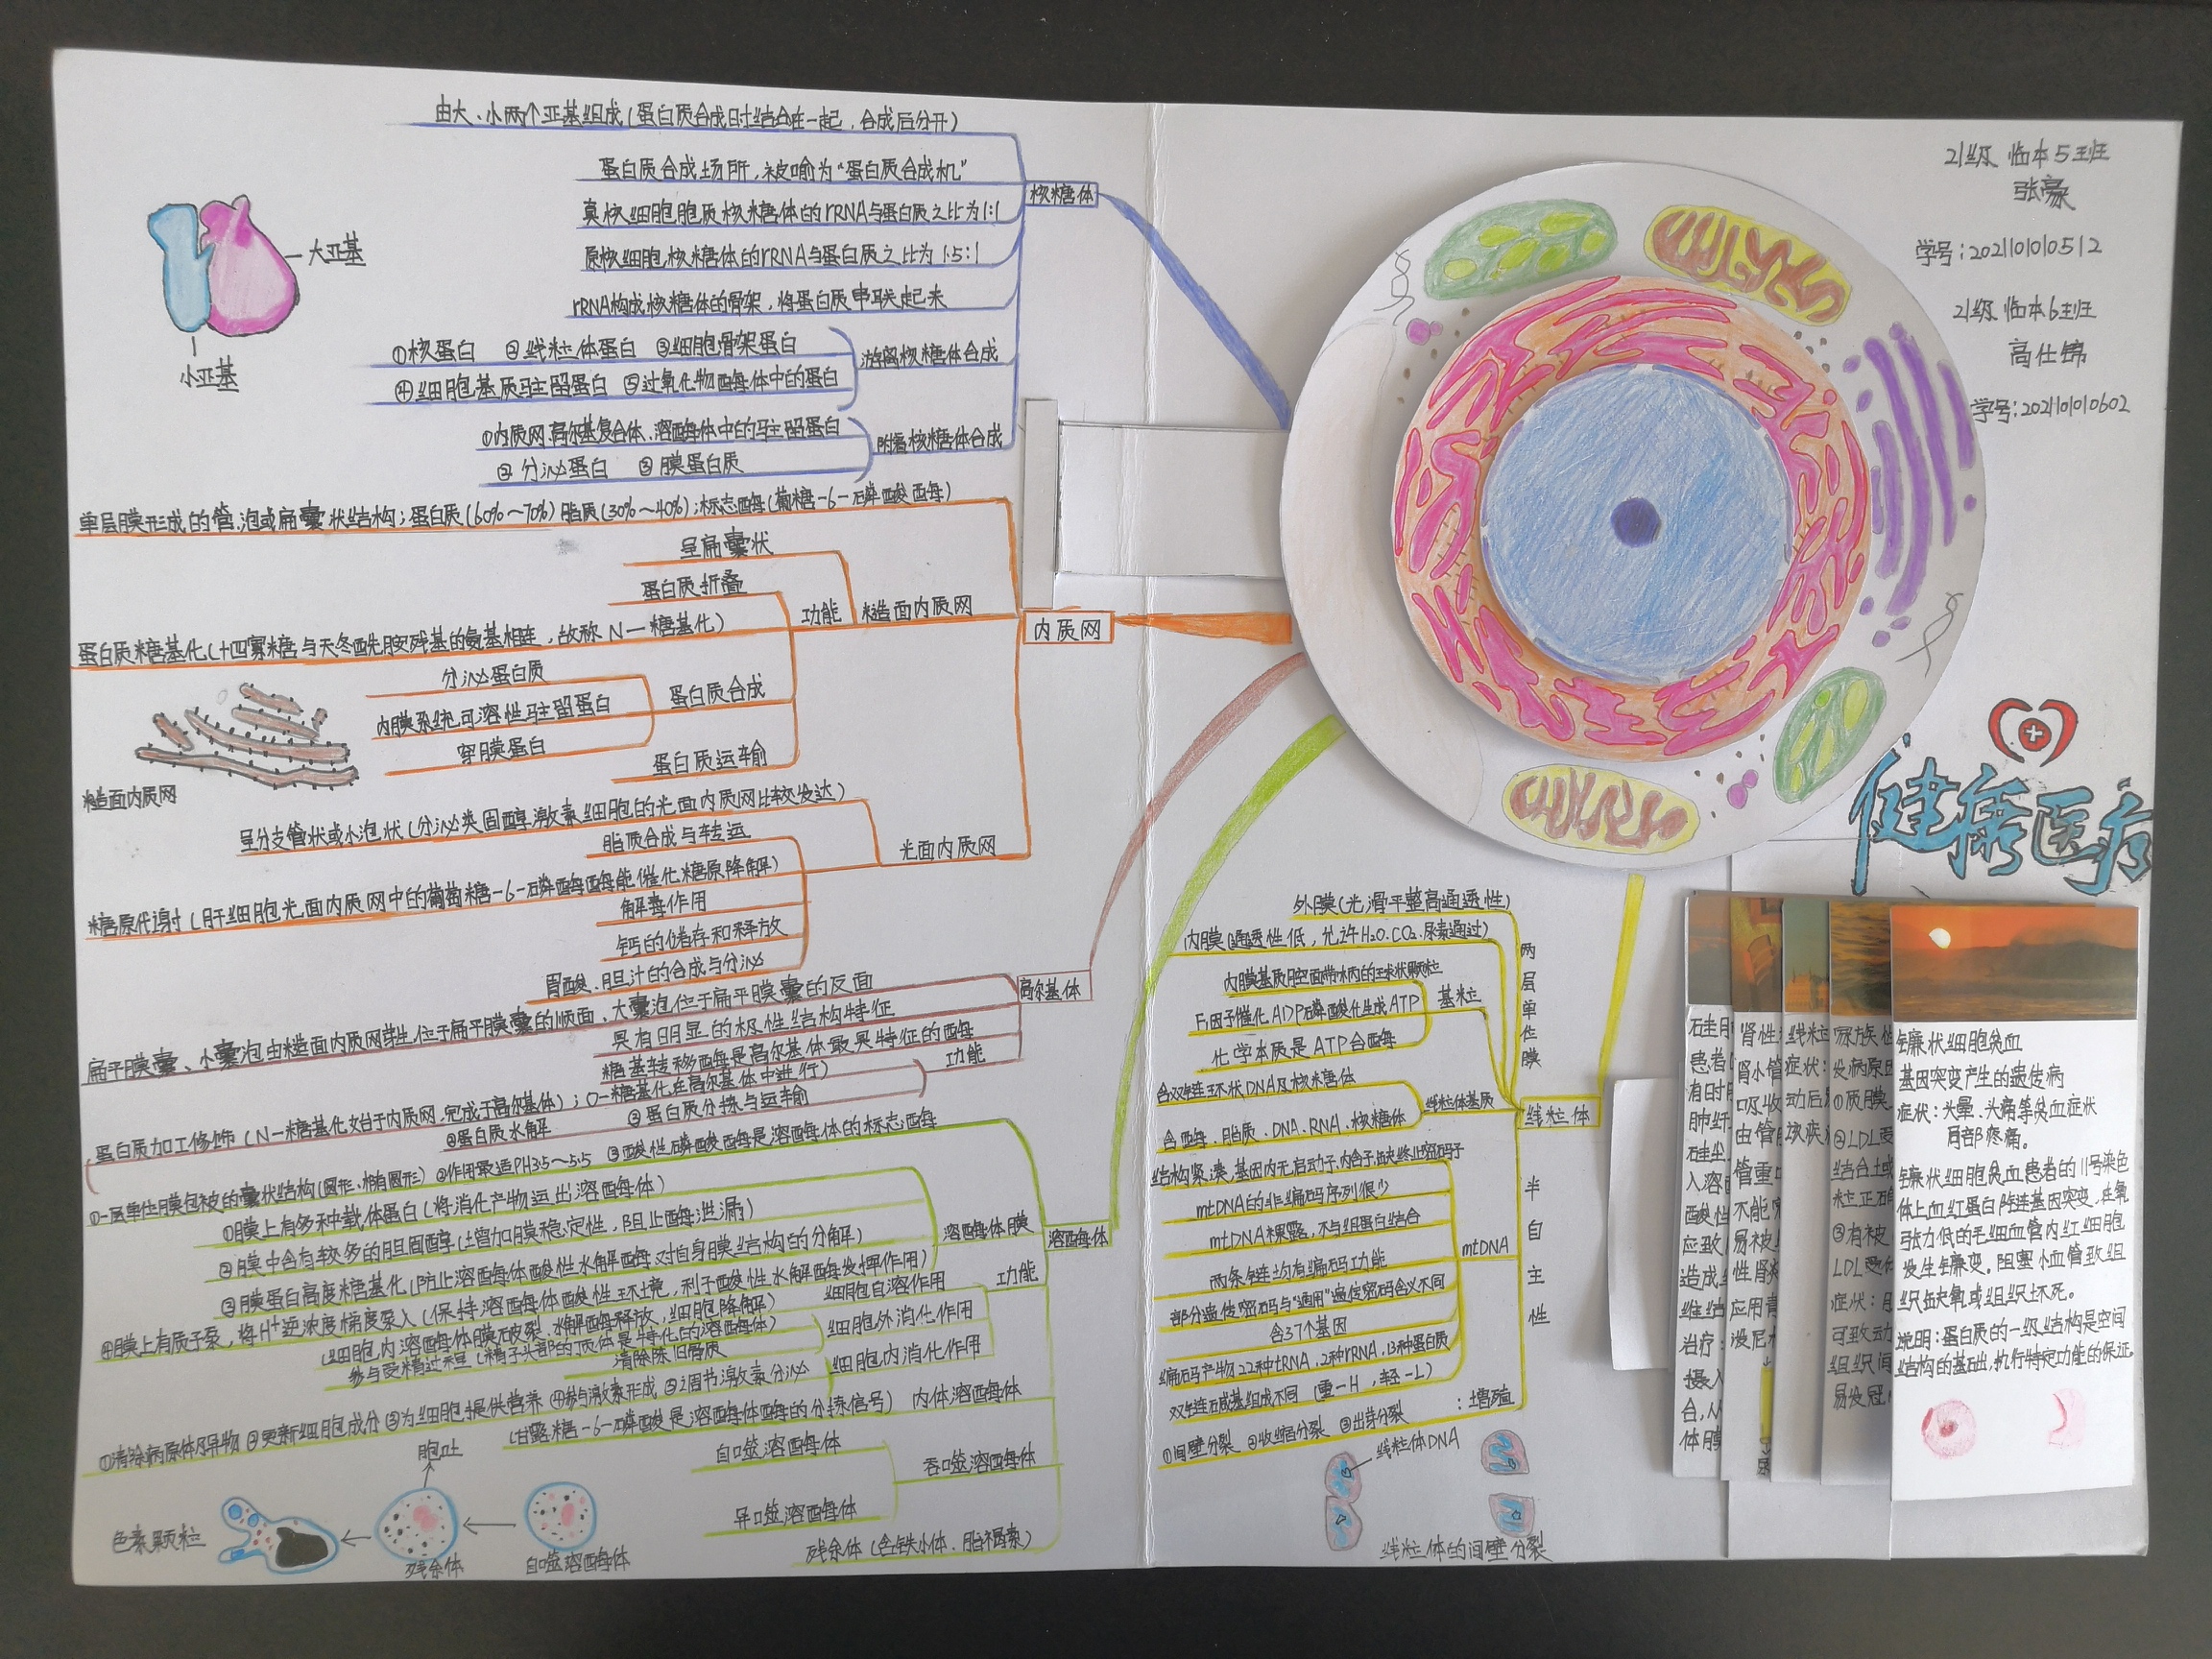 由大、小两个亚基组成(蛋白质合成时结合在一起，合成后分开)
蛋白质合成场所，被喻为“蛋白质合成机”
真核细胞胞质核糖体的rRNA与蛋白质之比为1:1
原核细胞核糖体的rRNA与蛋白质之比为1.5:1
rRNA构成核糖体的骨架，将蛋白质串联起来
①核蛋白 ②线粒体蛋白 ③细胞骨架蛋白
④细胞基质驻留蛋白 ⑤过氧化物酶体中的蛋白
游离核糖体合成
①内质网、高尔基复合体、溶酶体中的驻留蛋白
②分泌蛋白 ③膜蛋白质
附着核糖体合成
核糖体
大亚基
小亚基
单层膜形成的管、泡或扁囊状结构；蛋白质(60%~70%)脂质(30%~40%)；标志酶(葡糖-6-磷酸酶)
呈扁囊状
蛋白质折叠
蛋白质糖基化(十四寡糖与天冬酰胺残基的氨基相连，故称N-糖基化)
功能
糙面内质网
内质网
分泌蛋白质
内膜系统可溶性驻留蛋白
穿膜蛋白
蛋白质合成
蛋白质运输
糙面内质网
呈分支管状或小泡状(分泌类固醇激素细胞的光面内质网比较发达)
脂质合成与转运
光面内质网
糖原代谢(肝细胞光面内质网中的葡萄糖-6-磷酸酶能催化糖原降解)
解毒作用
钙的储存和释放
胃酸、胆汁的合成与分泌
高尔基体
扁平膜囊、小囊泡由糙面内质网芽生，位于扁平膜囊的顺面、大囊泡位于扁平膜囊的反面
具有明显的极性结构特征
糖基转移酶是高尔基体最具特征的酶
功能
蛋白质加工修饰(N-糖基化始于内质网，完成于高尔基体)；(O-糖基化在高尔基体中进行)
②蛋白质水解
③蛋白质分拣与运输
①一层单位膜包被的囊状结构(圆形、椭圆形) ②作用最适PH3.5~5.5 ③酸性磷酸酶是溶酶体的标志酶
①膜上有多种载体蛋白(将消化产物运出溶酶体)
②膜中含有较多的胆固醇(增加膜稳定性，阻止酶泄漏)
③膜蛋白高度糖基化(防止溶酶体酸性水解酶对自身膜结构的分解)
④膜上有质子泵，将H⁺逆浓度梯度泵入(保持溶酶体酸性环境，利于酸性水解酶发挥作用)
溶酶体膜
溶酶体
功能
(细胞内溶酶体膜破裂，水解酶释放，细胞降解)
细胞自溶作用
参与受精过程(精子头部的顶体是特化的溶酶体)
清除陈旧骨质
细胞外消化作用
细胞内消化作用
①清除病原体及异物 ②更新细胞成分 ③为细胞提供营养 ④参与激素形成 ⑤调节激素分泌
(甘露糖-6-磷酸是溶酶体酶的分拣信号)
内体溶酶体
自噬溶酶体
异噬溶酶体
吞噬溶酶体
残余体(含铁小体、脂褐素)
胞吐
色素颗粒
残余体
自噬溶酶体
外膜(光滑平整高通透性)
内膜(通透性低，允许H2O、CO2、尿素通过)
内膜基质腔面带柄的球状颗粒
F₁因子催化ADP磷酸化生成ATP
化学本质是ATP合酶
基粒
两层单位膜
含双链环状DNA及核糖体
含酶、脂质、DNA、RNA、核糖体
线粒体基质
线粒体
结构紧凑，基因内无启动子、内含子，缺终止密码子
mtDNA的非编码序列很少
mtDNA裸露，不与组蛋白结合
两条链均有编码功能
部分遗传密码与“通用”遗传密码含义不同
含37个基因
编码产物22种tRNA，2种rRNA，13种蛋白质
双链碱基组成不同(重-H，轻-L)
mtDNA
半自主性
①间壁分裂 ②收缩分裂 ③出芽分裂
：增殖
线粒体DNA
线粒体的间壁分裂
21级 临本5班
张豪
学号：2021101010512
21级 临本6班
高仕锦
学号：20211010602
健康医疗
镰状细胞贫血
基因突变产生的遗传病
症状：头晕、头痛等贫血症状
局部疼痛。
镰状细胞贫血患者的11号染色
体上血红蛋白β链基因突变，在氧
张力低的毛细血管内红细胞
发生镰变。阻塞小血管致组
织缺氧或组织坏死。
说明：蛋白质的一级结构是空间
结构的基础，执行特定功能的保证。